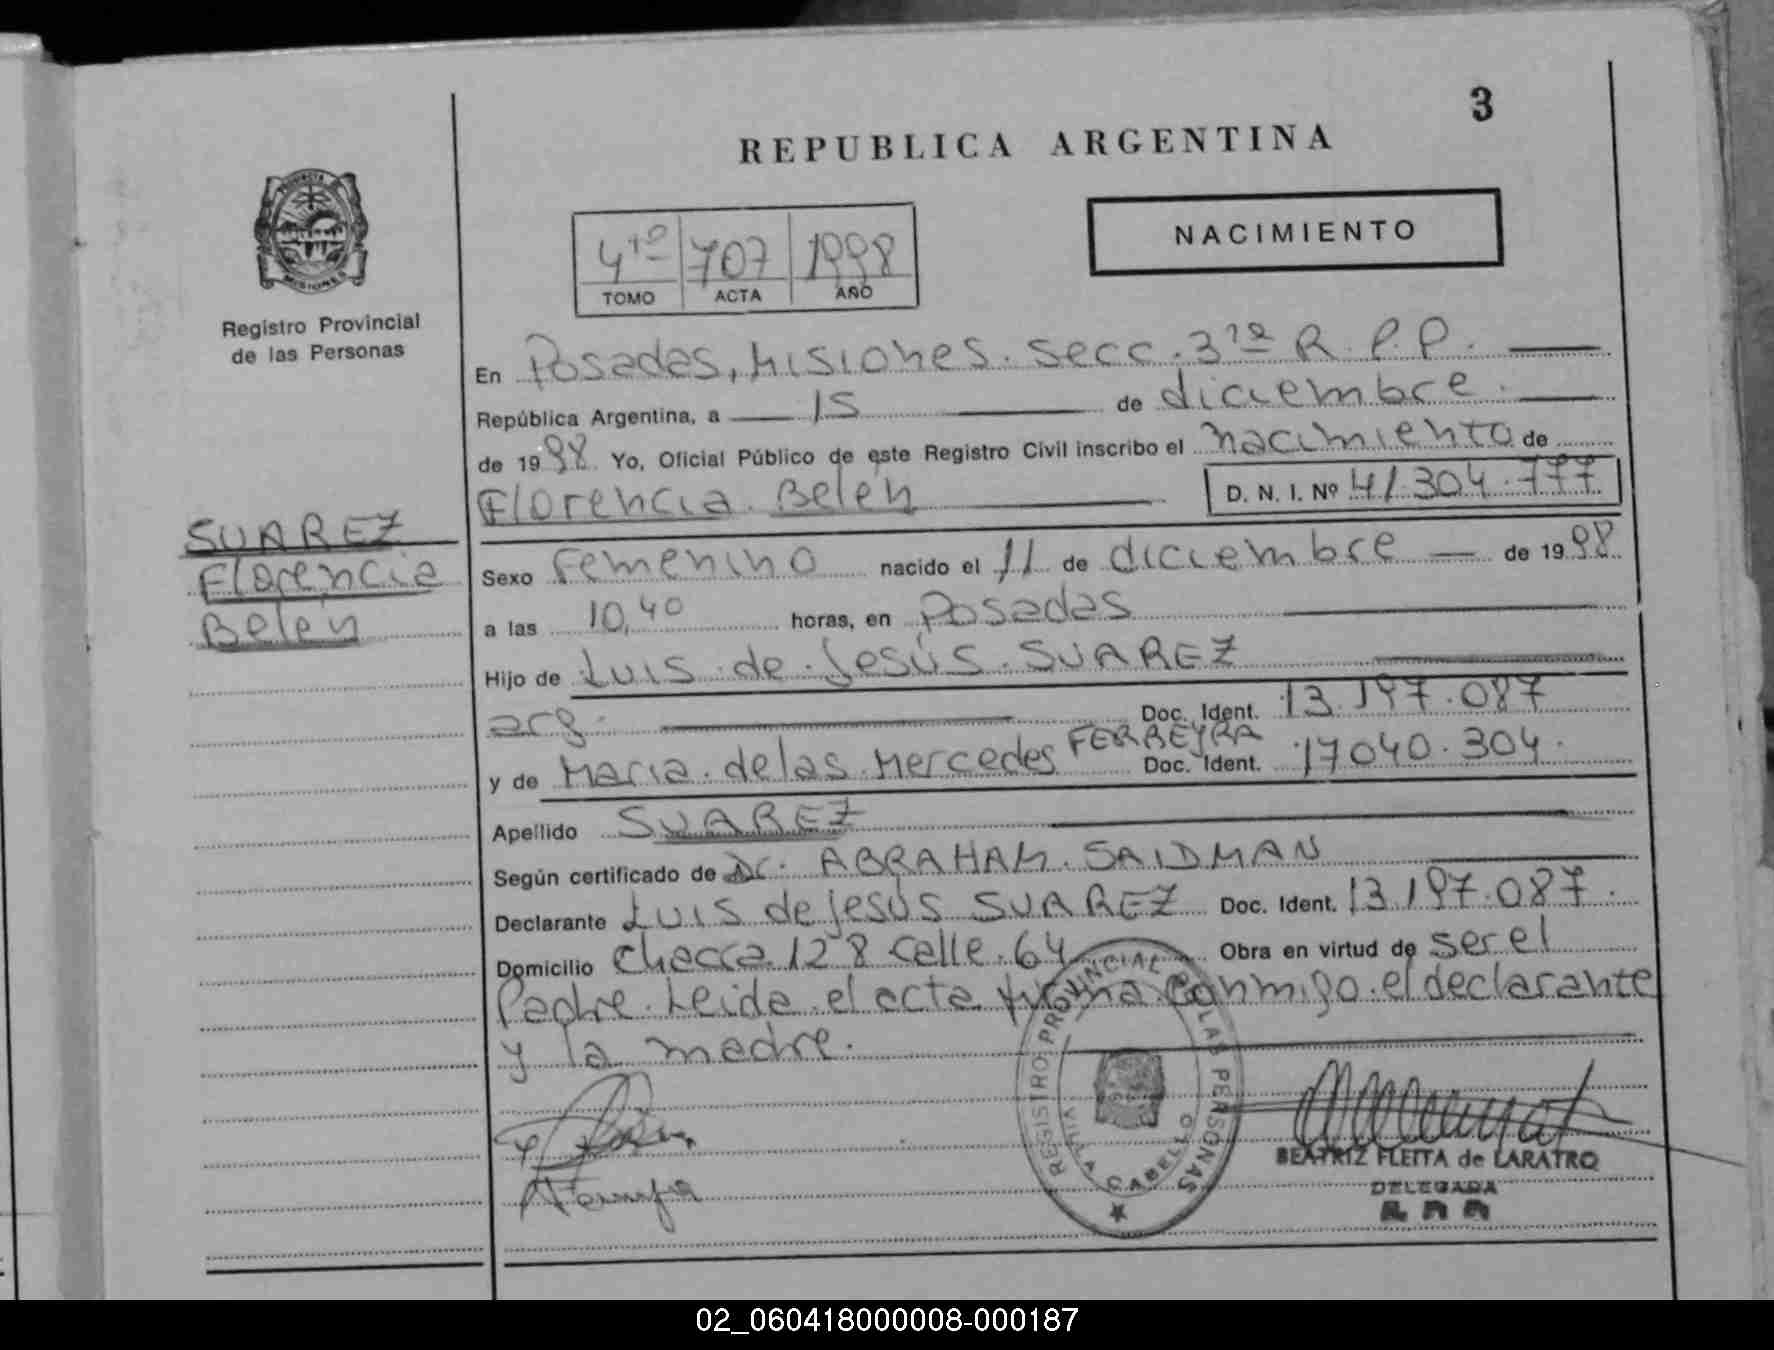 3
REPUBLICA ARGENTINA
NACIMIENTO
4to 707 1998
TOMO ACTA AÑO
PROVINCIA MISIONES
Registro Provincial
de las Personas
En Posadas, Misiones. Secc. 3ra R. P. P.
República Argentina, a 15 de diciembre.
de 1998. Yo, Oficial Público de este Registro Civil inscribo el nacimiento de
Florencia Belén D. N. I. Nº 41.304.777
SUAREZ
Florencia
Belén
Sexo Femenino nacido el 11 de diciembre de 1998
a las 10,40 horas, en Posadas
Hijo de Luis de Jesús SUAREZ
arg. Doc. Ident. 13.197.087
y de Maria de las Mercedes FERREYRA Doc. Ident. 17040.304.
Apellido SUAREZ
Según certificado de Dr. ABRAHAM SAIDMAN
Declarante Luis de Jesús SUAREZ Doc. Ident. 13.197.087.
Domicilio Chacra 128 calle 64 Obra en virtud de ser el
Padre. Leida el acta firma conmigo el declarante
y la madre.
REGISTRO PROVINCIAL DE LAS PERSONAS
VILLA CABELLO
BEATRIZ FLEITA de LARATRO
DELEGADA
02_060418000008-000187